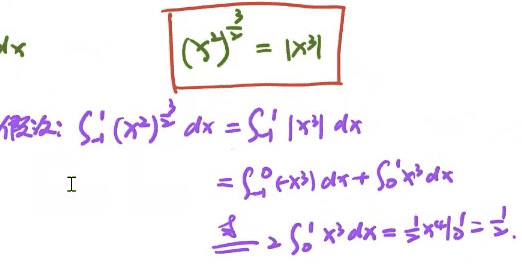 dx
(x²)^{3/2} = |x³|
假设: ∫₋₁¹ (x²)^{3/2} dx = ∫₋₁¹ |x³| dx
= ∫₋₁⁰ (-x³) dx + ∫₀¹ x³ dx
2 ∫₀¹ x³ dx = ½ x⁴|₀¹ = ½.